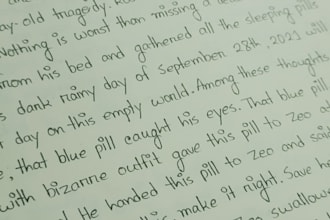 ay-old tragedy.
Nothing is worst than missing a
from his bed and gathered all the sleeping pills
s dark rainy day of September 28th, 2021 will
r day on this empty world. Among these thoughts
e, that blue pill caught his eyes. That blue pill
with bizarre outfit gave this pill to Zeo as
He handed this pill to Zeo and said
make it right. Save h
swallow